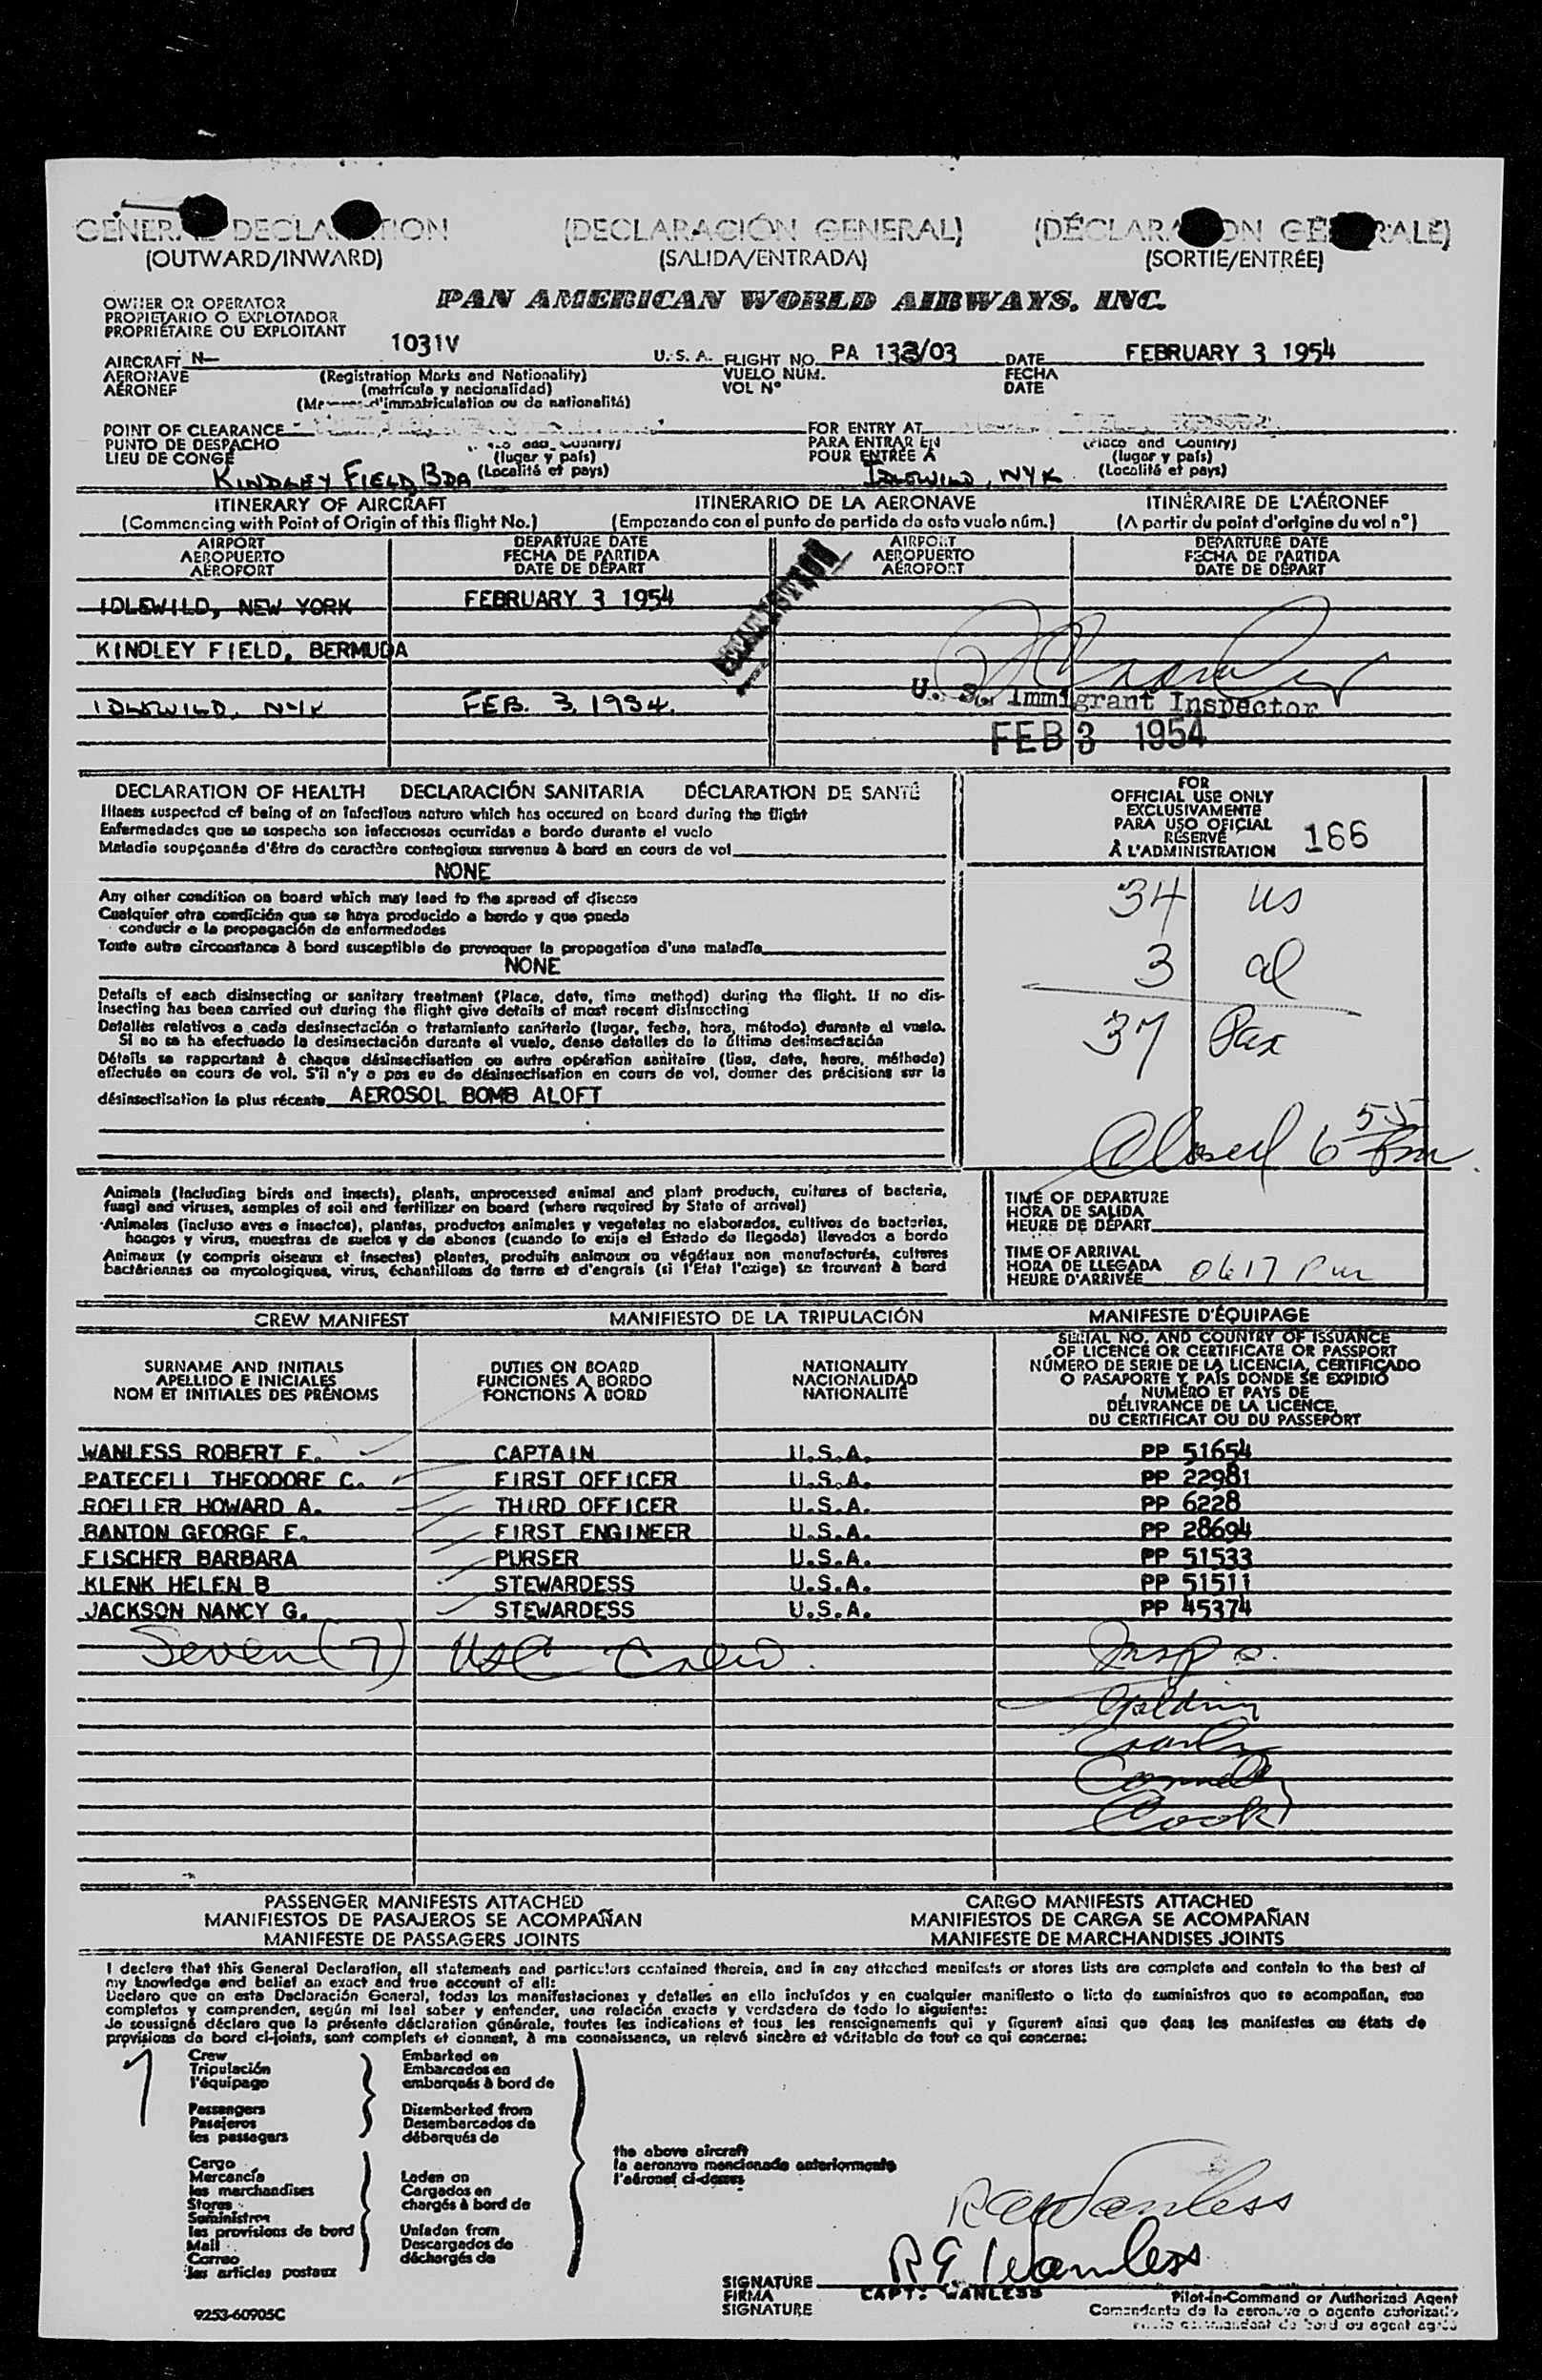 GENERAL DECLARATION (DECLARACIÓN GENERAL) (DÉCLARATION GÉNÉRALE)
(OUTWARD/INWARD) (SALIDA/ENTRADA) (SORTIE/ENTRÉE)
OWNER OR OPERATOR
PROPIETARIO O EXPLOTADOR
PROPRIÉTAIRE OU EXPLOITANT
PAN AMERICAN WORLD AIRWAYS, INC.
AIRCRAFT N— 1031V U.S.A. FLIGHT NO. PA 138/03 DATE FEBRUARY 3 1954
AERONAVE (Registration Marks and Nationality) VUELO NÚM. FECHA
AÉRONEF (matrícula y nacionalidad) VOL N° DATE
d'immatriculation ou de nationalité)
POINT OF CLEARANCE FOR ENTRY AT
PUNTO DE DESPACHO and Country) PARA ENTRAR EN (Place and Country)
LIEU DE CONGÉ (lugar y país) POUR ENTRÉE À (lugar y país)
KINDLEY FIELD, BDA (Localité et pays) IDLEWILD, NYK (Localité et pays)
ITINERARY OF AIRCRAFT ITINERARIO DE LA AERONAVE ITINÉRAIRE DE L'AÉRONEF
(Commencing with Point of Origin of this flight No.) (Empezando con el punto de partida de este vuelo núm.) (A partir du point d'origine du vol n°)
AIRPORT DEPARTURE DATE AIRPORT DEPARTURE DATE
AEROPUERTO FECHA DE PARTIDA AEROPUERTO FECHA DE PARTIDA
AÉROPORT DATE DE DÉPART AÉROPORT DATE DE DÉPART
IDLEWILD, NEW YORK FEBRUARY 3 1954
KINDLEY FIELD, BERMUDA
IDLEWILD, NYK FEB. 3, 1954.
U. S. Immigrant Inspector
FEB 3 1954
DECLARATION OF HEALTH DECLARACIÓN SANITARIA DÉCLARATION DE SANTÉ
Illness suspected of being of an infectious nature which has occured on board during the flight
Enfermedades que se sospecha son infecciosas ocurridas a bordo durante el vuelo
Maladie soupçonnée d'être de caractère contagieux survenue à bord en cours de vol
NONE
Any other condition on board which may lead to the spread of disease
Cualquier otra condición que se haya producido a bordo y que pueda
conducir a la propagación de enfermedades
Toute autre circonstance à bord susceptible de provoquer la propagation d'une maladie
NONE
Details of each disinsecting or sanitary treatment (Place, date, time method) during the flight. If no dis-
insecting has been carried out during the flight give details of most recent disinsecting
Detalles relativos a cada desinsectación o tratamiento sanitario (lugar, fecha, hora, método) durante el vuelo.
Si no se ha efectuado la desinsectación durante el vuelo, dense detalles de la última desinsectación
Détails se rapportant à chaque désinsectisation ou autre opération sanitaire (lieu, date, heure, méthode)
effectuée en cours de vol. S'il n'y a pas eu de désinsectisation en cours de vol, donner des précisions sur la
désinsectisation la plus récente AEROSOL BOMB ALOFT
FOR
OFFICIAL USE ONLY
EXCLUSIVAMENTE
PARA USO OFICIAL
RÉSERVÉ
À L'ADMINISTRATION 166
34 US
3 al
37 Pax
Closed 6 55 Pm
Animals (including birds and insects), plants, unprocessed animal and plant products, cultures of bacteria,
fungi and viruses, samples of soil and fertilizer on board (where required by State of arrival)
Animales (incluso aves e insectos), plantas, productos animales y vegetales no elaborados, cultivos de bacterias,
hongos y virus, muestras de suelos y de abonos (cuando lo exija el Estado de llegada) llevados a bordo
Animaux (y compris oiseaux et insectes) plantes, produits animaux ou végétaux non manufacturés, cultures
bactériennes ou mycologiques, virus, échantillons de terre et d'engrais (si l'Etat l'exige) se trouvant à bord
TIME OF DEPARTURE
HORA DE SALIDA
HEURE DE DÉPART
TIME OF ARRIVAL
HORA DE LLEGADA
HEURE D'ARRIVÉE 0617 Pm
CREW MANIFEST MANIFIESTO DE LA TRIPULACIÓN MANIFESTE D'ÉQUIPAGE
SURNAME AND INITIALS
APELLIDO E INICIALES
NOM ET INITIALES DES PRÉNOMS
DUTIES ON BOARD
FUNCIONES A BORDO
FONCTIONS À BORD
NATIONALITY
NACIONALIDAD
NATIONALITÉ
SERIAL NO. AND COUNTRY OF ISSUANCE
OF LICENCE OR CERTIFICATE OR PASSPORT
NÚMERO DE SERIE DE LA LICENCIA, CERTIFICADO
O PASAPORTE Y PAÍS DONDE SE EXPIDIÓ
NUMÉRO ET PAYS DE
DÉLIVRANCE DE LA LICENCE,
DU CERTIFICAT OU DU PASSEPORT
WANLESS ROBERT E. CAPTAIN U.S.A. PP 51654
PATECELL THEODORE C. FIRST OFFICER U.S.A. PP 22981
ROELLER HOWARD A. THIRD OFFICER U.S.A. PP 6228
BANTON GEORGE E. FIRST ENGINEER U.S.A. PP 28694
FISCHER BARBARA PURSER U.S.A. PP 51533
KLENK HELEN B STEWARDESS U.S.A. PP 51511
JACKSON NANCY G. STEWARDESS U.S.A. PP 45374
Seven (7) USC Crew. Insp s.
Cook
PASSENGER MANIFESTS ATTACHED CARGO MANIFESTS ATTACHED
MANIFIESTOS DE PASAJEROS SE ACOMPAÑAN MANIFIESTOS DE CARGA SE ACOMPAÑAN
MANIFESTE DE PASSAGERS JOINTS MANIFESTE DE MARCHANDISES JOINTS
I declare that this General Declaration, all statements and particulars contained therein, and in any attached manifests or stores lists are complete and contain to the best of
my knowledge and belief an exact and true account of all:
Declaro que en esta Declaración General, todas las manifestaciones y detalles en ella incluídos y en cualquier manifiesto o lista de suministros que se acompañan, son
completos y comprenden, según mi leal saber y entender, una relación exacta y verdadera de todo lo siguiente:
Je soussigné déclare que la présente déclaration générale, toutes les indications et tous les renseignements qui y figurent ainsi que dans les manifestes ou états de
provisions de bord ci-joints, sont complets et donnent, à ma connaissance, un relevé sincère et véritable de tout ce qui concerne:
7 Crew Embarked on
Tripulación Embarcados en
l'équipage embarqués à bord de
Passengers Disembarked from
Pasajeros Desembarcados de
les passagers débarqués de
the above aircraft
la aeronave mencionada anteriormente
l'aéronef ci-dessus
Cargo
Mercancía Laden on
les marchandises Cargados en
Stores chargés à bord de
Suministros
les provisions de bord Unladen from
Mail Descargados de
Correo déchargés de
les articles postaux
R E Wanless
R E Wanless
SIGNATURE CAPT. WANLESS
FIRMA Pilot-in-Command or Authorized Agent
SIGNATURE Comandante de la aeronave o agente autorizado
commandant de bord ou agent agréé
9253-60905C